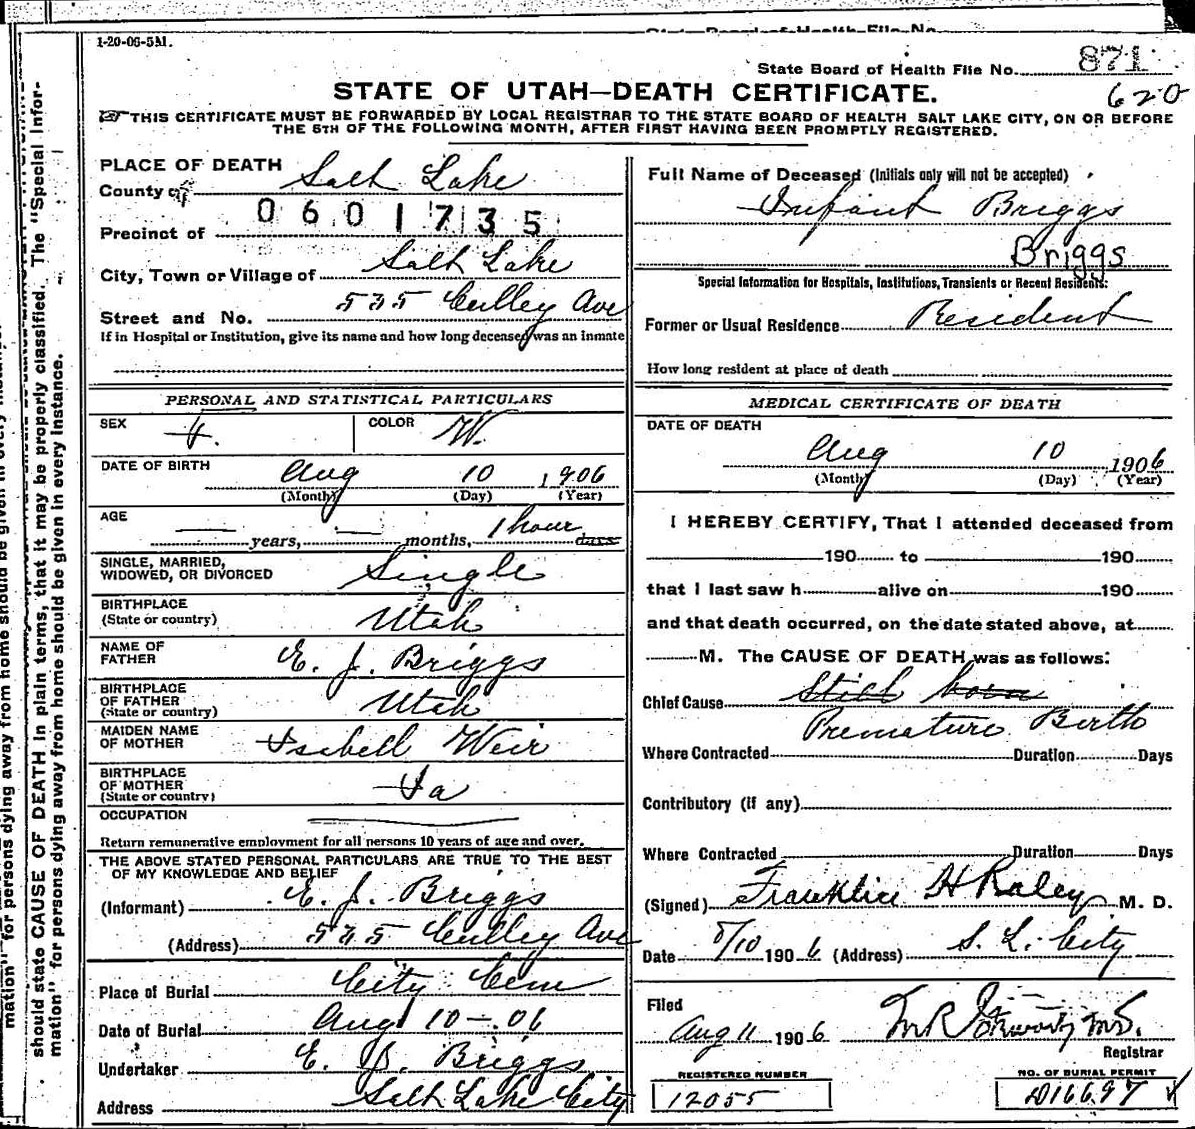 1-20-06-5M.
State Board of Health File No. 871
620
STATE OF UTAH—DEATH CERTIFICATE.
THIS CERTIFICATE MUST BE FORWARDED BY LOCAL REGISTRAR TO THE STATE BOARD OF HEALTH SALT LAKE CITY, ON OR BEFORE
THE 5TH OF THE FOLLOWING MONTH, AFTER FIRST HAVING BEEN PROMPTLY REGISTERED.
PLACE OF DEATH
County of Salt Lake
0601735
Precinct of
City, Town or Village of Salt Lake
Street and No. 535 Culley Ave
If in Hospital or Institution, give its name and how long deceased was an inmate
PERSONAL AND STATISTICAL PARTICULARS
SEX f. COLOR W.
DATE OF BIRTH Aug 10 1906
(Month) (Day) (Year)
AGE — years, — months, 1 hour days
SINGLE, MARRIED,
WIDOWED, OR DIVORCED Single
BIRTHPLACE
(State or country) Utah
NAME OF
FATHER E. J. Briggs
BIRTHPLACE
OF FATHER
(State or country) Utah
MAIDEN NAME
OF MOTHER Isabell Weir
BIRTHPLACE
OF MOTHER
(State or country) Ia
OCCUPATION
Return remunerative employment for all persons 10 years of age and over.
THE ABOVE STATED PERSONAL PARTICULARS ARE TRUE TO THE BEST
OF MY KNOWLEDGE AND BELIEF
(Informant) E. J. Briggs
(Address) 535 Culley Ave
Place of Burial City Cem
Date of Burial Aug 10-.06
Undertaker E. J. Briggs
Address Salt Lake City
Full Name of Deceased (Initials only will not be accepted)
Infant Briggs
Briggs
Special Information for Hospitals, Institutions, Transients or Recent Residents:
Former or Usual Residence Resident
How long resident at place of death
MEDICAL CERTIFICATE OF DEATH
DATE OF DEATH
Aug 10 1906
(Month) (Day) (Year)
I HEREBY CERTIFY, That I attended deceased from
190 to 190
that I last saw h alive on 190
and that death occurred, on the date stated above, at
M. The CAUSE OF DEATH was as follows:
Chief Cause Still born
Premature Birth
Where Contracted Duration Days
Contributory (if any)
Where Contracted Duration Days
(Signed) Franklin H Raley M. D.
Date 8/10 1906 (Address) S. L. City
Filed
Aug 11 1906
Registrar
REGISTERED NUMBER
12055
NO. OF BURIAL PERMIT
D16697
should state CAUSE OF DEATH in plain terms, that it may be properly classified. The "Special Infor-
mation" for persons dying away from home should be given in every instance.